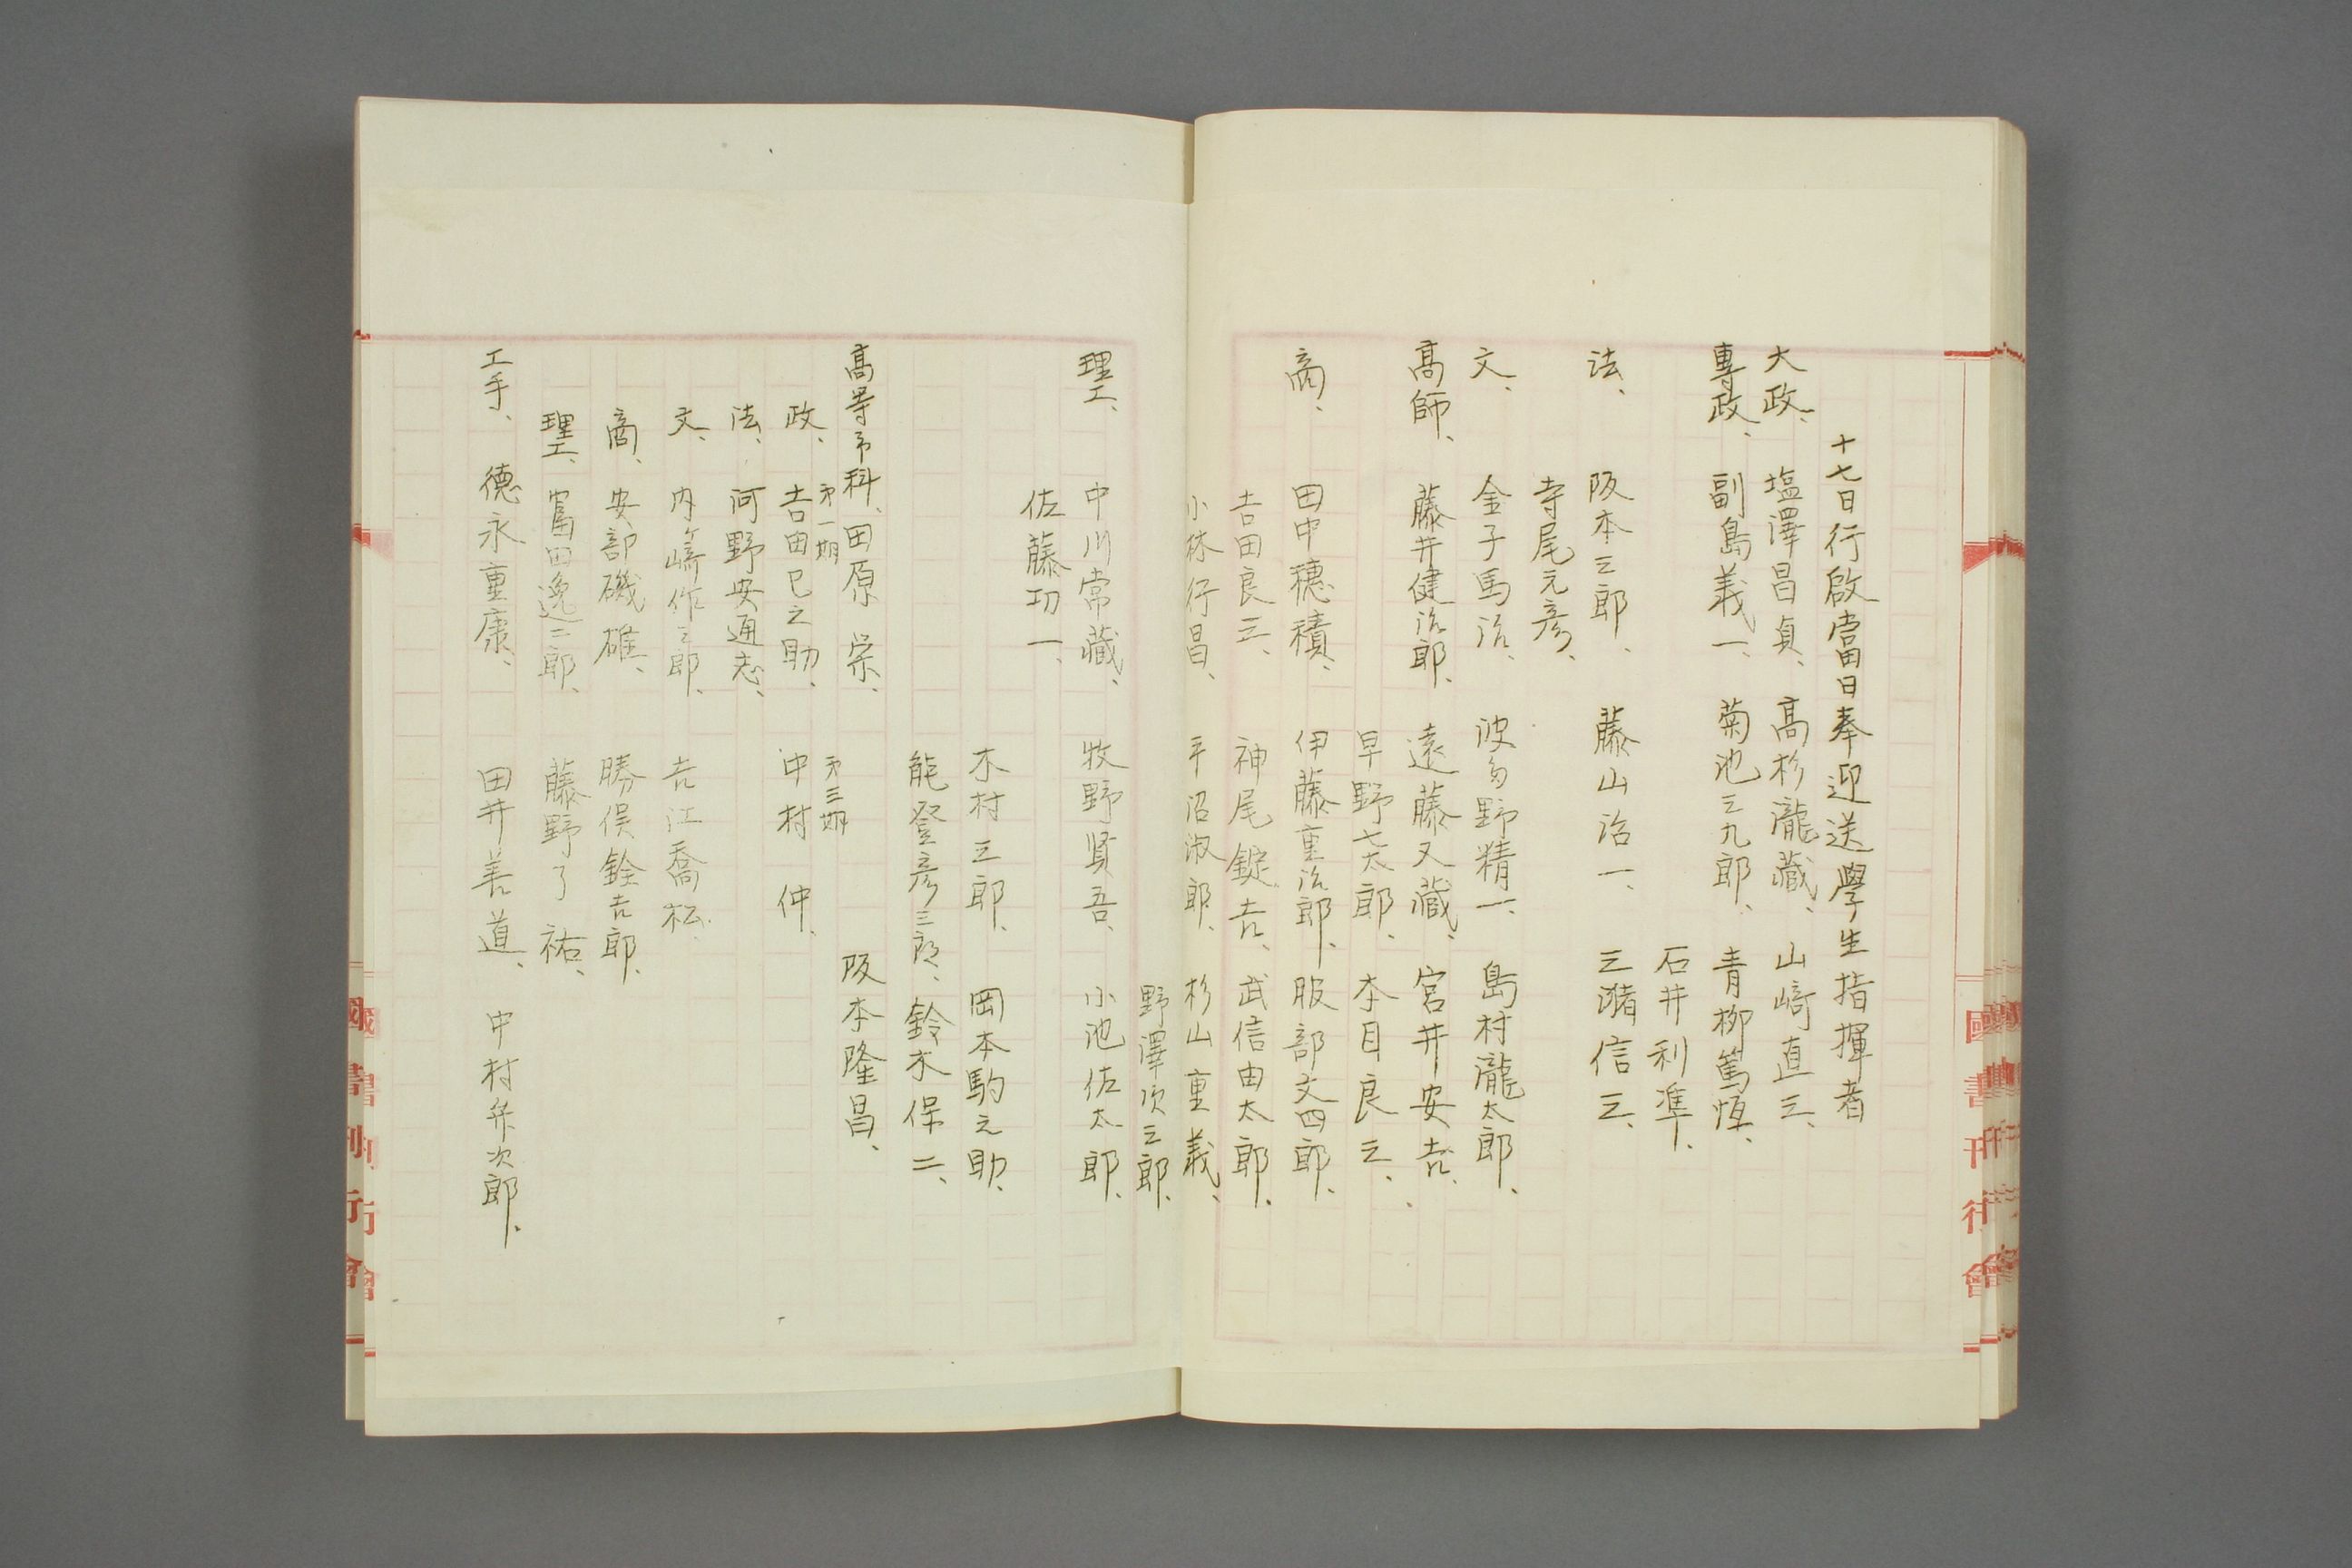 十七日行啟當日奉迎送學生指揮者
大政、塩澤昌貞、高杉瀧藏、山﨑直三、
專政、副島義一、菊池三九郎、青柳篤恆、
石井利準、
法、阪本三郎、藤山治一、三潴信三、
寺尾元彦、
文、金子馬治、波多野精一、島村瀧太郎、
高師、藤井健治郎、遠藤又藏、宮井安吉、
早野七太郎、本目良三、
商、田中穗積、伊藤重治郎、服部文四郎、
吉田良三、神尾錠吉、武信由太郎、
小林行昌、平沼淑郎、杉山重義、
野澤次三郎、
理工、中川常藏、牧野賢吾、小池佐太郎、
佐藤功一、
木村三郎、岡本駒之助、
能登彦三郎、鈴木保二、
高等予科、田原 栄、阪本隆昌、
第一期 第三期
政、吉田巳之助、中村 仲、
法、河野安通志、
文、内ヶ﨑作三郎、吉江喬松、
商、安部磯雄、勝俣銓吉郎、
理工、富田逸二郎、藤野了祐、
工手、德永重康、田井善道、中村弁次郎、
國書刊行會
國書刊行會